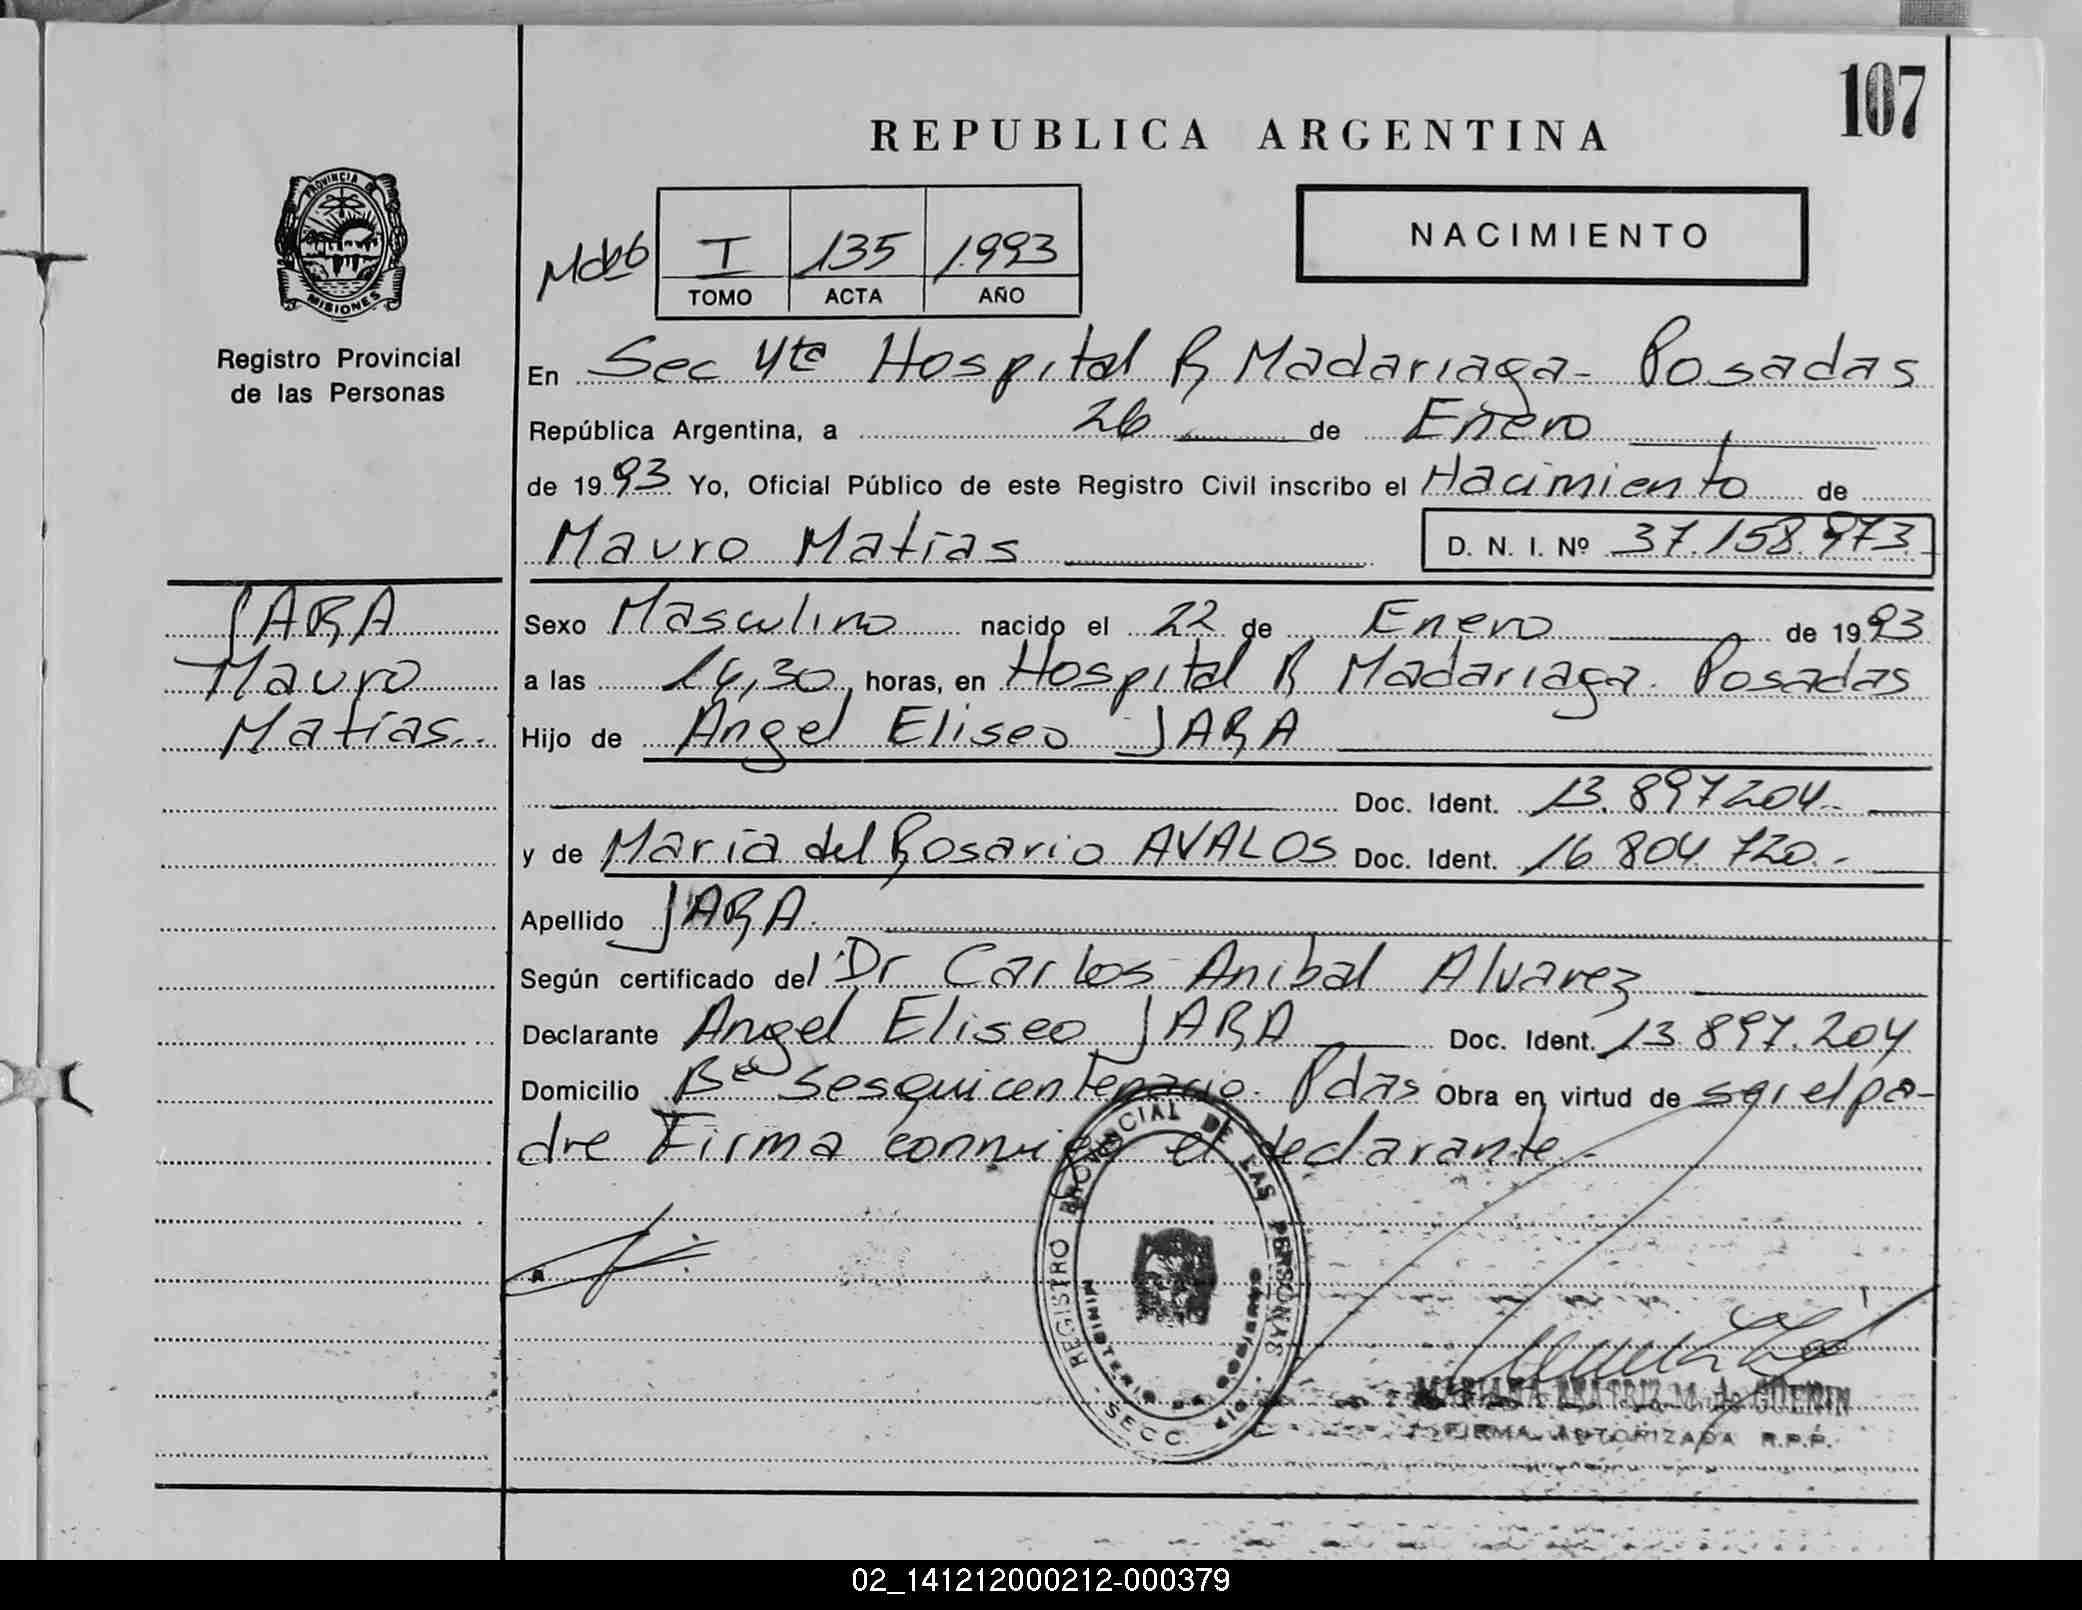 107
REPUBLICA ARGENTINA
PROVINCIA DE
MISIONES
Registro Provincial
de las Personas
I 135 1.993
TOMO ACTA AÑO
NACIMIENTO
En Sec 4ta Hospital R Madariaga - Posadas
República Argentina, a 26 de Enero
de 1993 Yo, Oficial Público de este Registro Civil inscribo el Nacimiento de
Mauro Matías D. N. I. Nº 37.158.973
JARA
Mauro
Matías
Sexo Masculino nacido el 22 de Enero de 1993
a las 14,30 horas, en Hospital R Madariaga. Posadas
Hijo de Angel Eliseo JARA
Doc. Ident. 13.897204
y de María del Rosario AVALOS Doc. Ident. 16 804 720.-
Apellido JARA
Según certificado del Dr Carlos Anibal Alvarez
Declarante Angel Eliseo JARA Doc. Ident. 13 897.204
Domicilio Bº Sesquicentenario. Pdas Obra en virtud de ser el pa-
dre Firma conmigo el declarante.-
REGISTRO PROVINCIAL DE LAS PERSONAS
MINISTERIO DE GOBIERNO
SECC.
MARIANA BEATRIZ M. de GUENIN
FIRMA AUTORIZADA R.P.P.
02_141212000212-000379